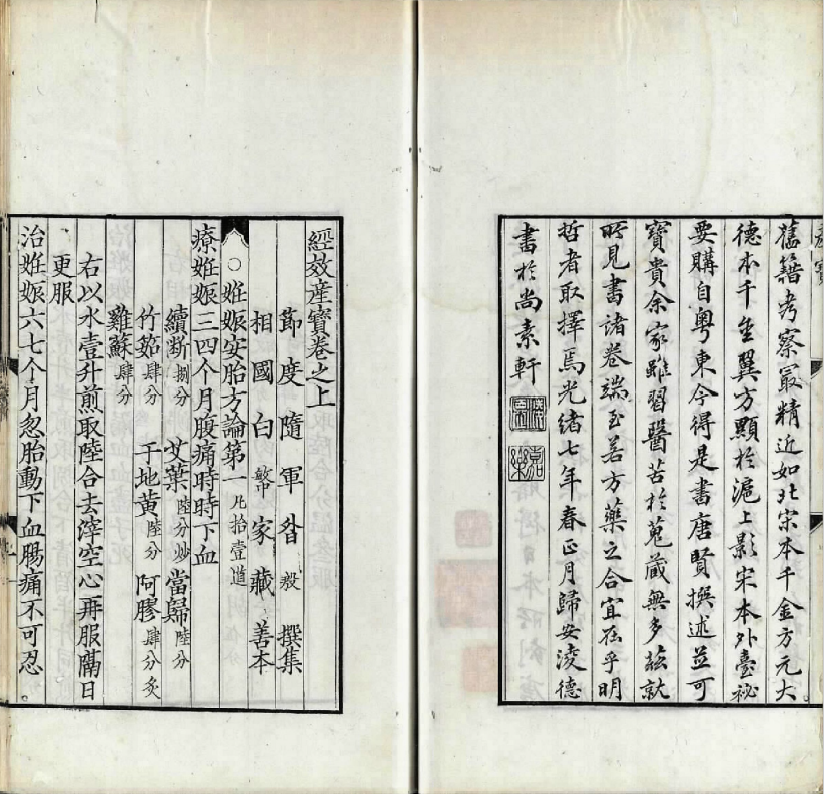 產寶
舊籍考察最精近如北宋本千金方元大
德本千金翼方顯於滬上影宋本外臺祕
要購自粵東今得是書唐賢撰述並可
寶貴余家雖習醫苦於蒐藏無多茲就
所見書諸卷端至若方藥之合宜在乎明
哲者取擇焉光緒七年春正月歸安淩德
書於尚素軒
經效產寶卷之上
節度隨軍昝殷撰集
相國白敏中家藏善本
○妊娠安胎方論第一凡拾壹道
療妊娠三四个月腹痛時時下血
續斷捌分 艾葉陸分炒 當歸陸分
竹筎肆分 干地黃陸分 阿膠肆分炙
雞蘇肆分
右以水壹升煎取陸合去滓空心再服隔日
更服
治妊娠六七个月忽胎動下血腸痛不可忍